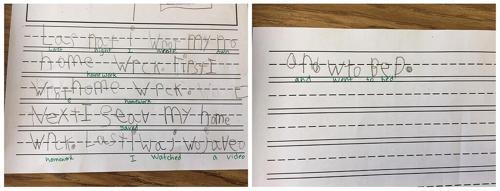 Las nit I my ho
Last night I wrote my
home wrck. First I
homework
home wrck.
homework
Next I seav my home
saved
wrk. Last I a veo
homework I watched a video
and w to BeD.
and went to bed